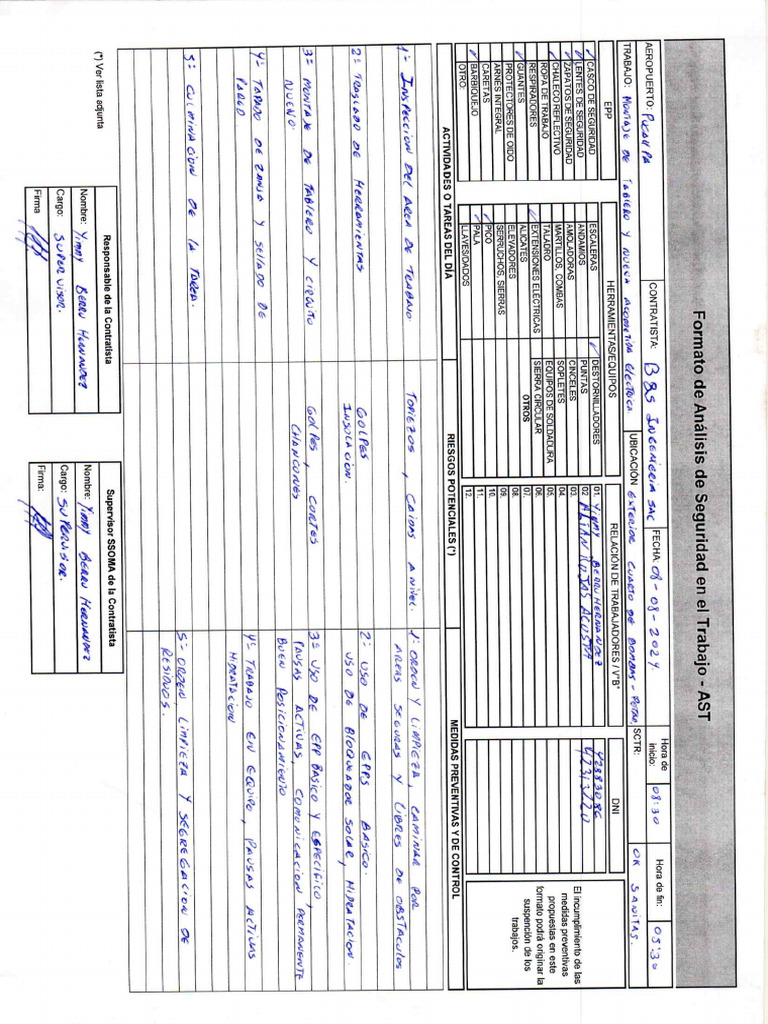 Formato de Análisis de Seguridad en el Trabajo - AST
AEROPUERTO: PUCALLPA
CONTRATISTA: B&S INGENIERIA SAC
FECHA: 08-08-2024
Hora de inicio: 08:30
Hora de fin: 05:30
TRABAJO: MONTAJE DE TABLERO Y NUEVA ACOMETIDA ELECTRICA.
UBICACIÓN EXTERIOR CUARTO DE BOMBAS - POTAB.
SCTR: OK SANITAS.
EPP
CASCO DE SEGURIDAD
LENTES DE SEGURIDAD
ZAPATOS DE SEGURIDAD
CHALECO REFLECTIVO
ROPA DE TRABAJO
RESPIRADORES
GUANTES
PROTECTORES DE OIDO
ARNES INTEGRAL
CARETAS
BARBIQUEJO
OTRO:
HERRAMIENTAS/EQUIPOS
ESCALERAS
ANDAMIOS
AMOLADORAS
MARTILLOS, COMBAS
TALADRO
EXTENSIONES ELECTRICAS
ALICATES
ELEVADORES
SERRUCHOS, SIERRAS
PICO
PALA
LLAVES/DADOS
DESTORNILLADORES
PUNTAS
CINCELES
SOPLETES
EQUIPOS DE SOLDADURA
SIERRA CIRCULAR
OTROS
RELACIÓN DE TRABAJADORES / V°B°
DNI
01. YIMMY BERRU HERNANDEZ 42883086
02. ALIAN ROJAS ACOSTA 42313220
03.
04.
05.
06.
07.
08.
09.
10.
11.
12.
El incumplimiento de las
medidas preventivas
propuestas en este
formato podrá originar la
suspención de los
trabajos.
ACTIVIDADES O TAREAS DEL DÍA
1º- INSPECCION DEL AREA DE TRABAJO.
2º- TRASLADO DE HERRAMIENTAS
3º- MONTAJE DE TABLERO Y CIRCUITO
NUEVO.
4º- TAPADO DE ZANJA Y SELLADO DE
PARED
5º- CULMINACION DE LA TAREA.
RIESGOS POTENCIALES (*)
TOPIEZOS, CAIDAS A NIVEL.
GOLPES
INSOLACION.
GOLPES, CORTES
CHANCONES
MEDIDAS PREVENTIVAS Y DE CONTROL
1º- ORDEN Y LIMPIEZA, CAMINAR POR
AREAS SEGURAS Y LIBRES DE OBSTACULOS
2º- USO DE EPPS BASICO.
USO DE BLOQUEADOR SOLAR, HIDRATACION.
3º- USO DE EPP BASICO Y ESPECIFICO,
PAUSAS ACTIVAS, COMUNICACION PERMANENTE
BUEN POSICIONAMIENTO
4º- TRABAJO EN EQUIPO, PAUSAS ACTIVAS
HIDRATACION
5º- ORDEN, LIMPIEZA Y SEGREGACION DE
RESIDUOS.
(*) Ver lista adjunta
Responsable de la Contratista
Nombre: YIMMY BERRU HERNANDEZ
Cargo: SUPERVISOR.
Firma
Supervisor SSOMA de la Contratista
Nombre: YIMMY BERRU HERNANDEZ
Cargo: SUPERVISOR.
Firma: